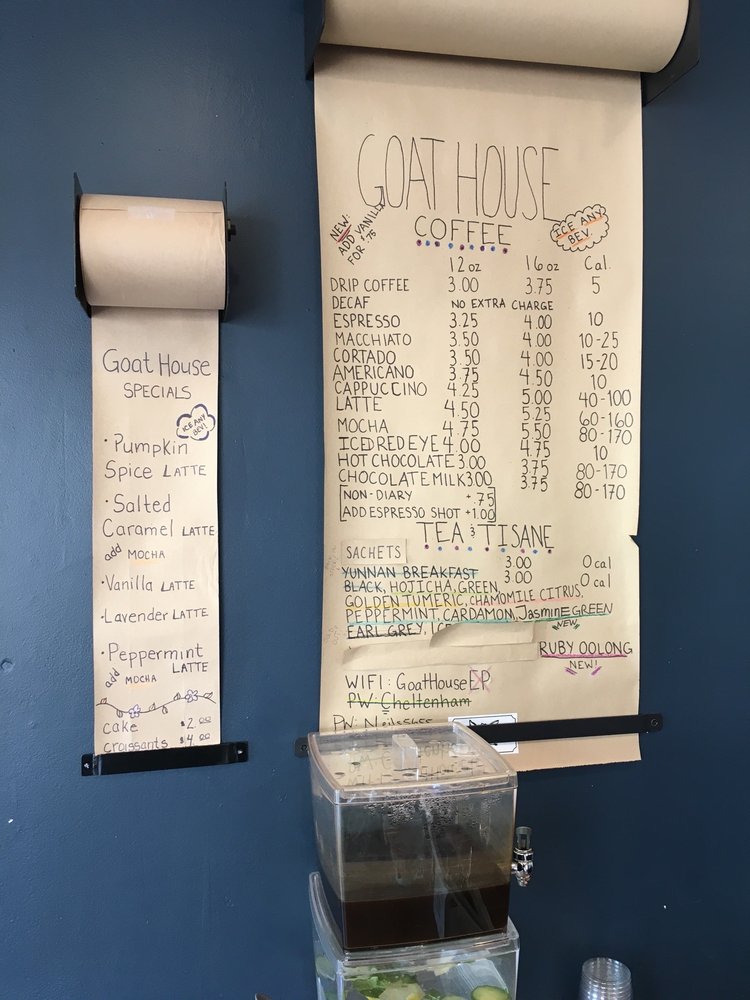 Goat House
SPECIALS
ICE ANY
BEV!
• Pumpkin
Spice LATTE
• Salted
Caramel LATTE
add MOCHA
• Vanilla LATTE
• Lavender LATTE
• Peppermint
LATTE
add MOCHA
cake $2.00
croissants $4.00
GOAT HOUSE
COFFEE
NEW:
ADD VANILLA
FOR $.75
ICE ANY
BEV.
12 oz 16 oz Cal.
DRIP COFFEE 3.00 3.75 5
DECAF NO EXTRA CHARGE
ESPRESSO 3.25 4.00 10
MACCHIATO 3.50 4.00 10-25
CORTADO 3.50 4.00 15-20
AMERICANO 3.75 4.50 10
CAPPUCCINO 4.25 5.00 40-100
LATTE 4.50 5.25 60-160
MOCHA 4.75 5.50 80-170
ICED RED EYE 4.00 4.75 10
HOT CHOCOLATE 3.00 3.75 80-170
CHOCOLATE MILK 3.00 3.75 80-170
NON-DIARY +.75
ADD ESPRESSO SHOT +1.00
TEA & TISANE
SACHETS 3.00 0 cal
YUNNAN BREAKFAST 3.00 0 cal
BLACK, HOJICHA, GREEN
GOLDEN TUMERIC, CHAMOMILE CITRUS,
PEPPERMINT, CARDAMOM, JasmINE GREEN
EARL GREY, NEW
RUBY OOLONG
NEW!
WIFI: GoatHouseEP
PW: Cheltenham
PW: